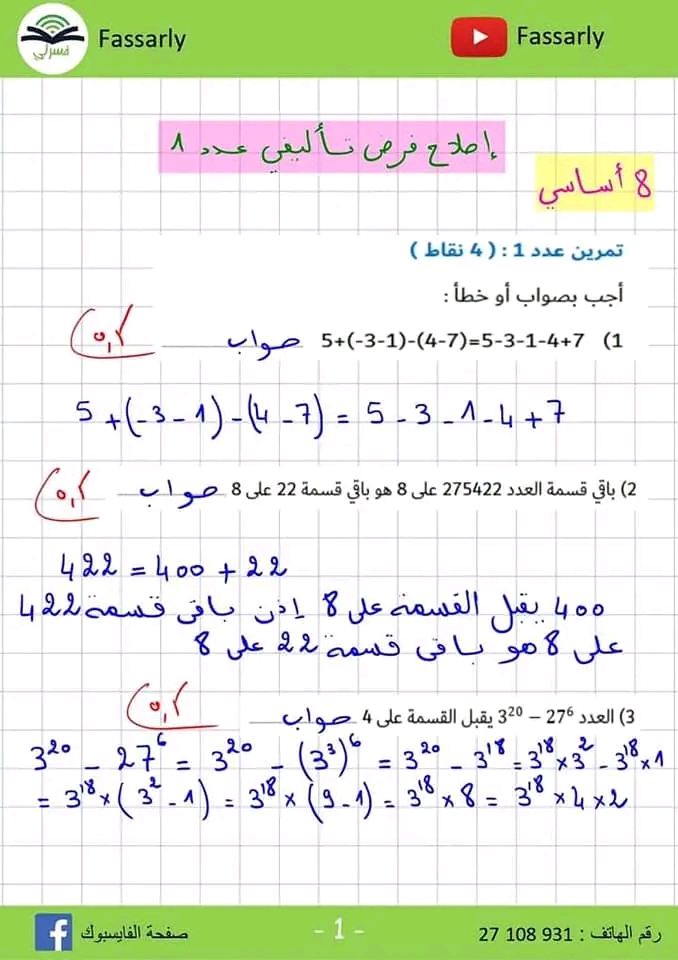 فسرلي
Fassarly
Fassarly
إصلاح فرض تأليفي عدد 1
8 أساسي
تمرين عدد 1 : ( 4 نقاط )
أجب بصواب أو خطأ :
1) 5+(-3-1)-(4-7)=5-3-1-4+7 صواب
5 + (-3 - 1) - (4 - 7) = 5 - 3 - 1 - 4 + 7
2) باقي قسمة العدد 275422 على 8 هو باقي قسمة 22 على 8 صواب
422 = 400 + 22
400 يقبل القسمة على 8 إذن باقي قسمة 422
على 8 هو باقي قسمة 22 على 8
3) العدد 3²⁰ – 27⁶ يقبل القسمة على 4 صواب
3²⁰ - 27⁶ = 3²⁰ - (3³)⁶ = 3²⁰ - 3¹⁸ = 3¹⁸ × 3² - 3¹⁸ × 1
= 3¹⁸ × (3² - 1) = 3¹⁸ × (9 - 1) = 3¹⁸ × 8 = 3¹⁸ × 4 × 2
صفحة الفايسبوك
- 1 -
رقم الهاتف : 27 108 931